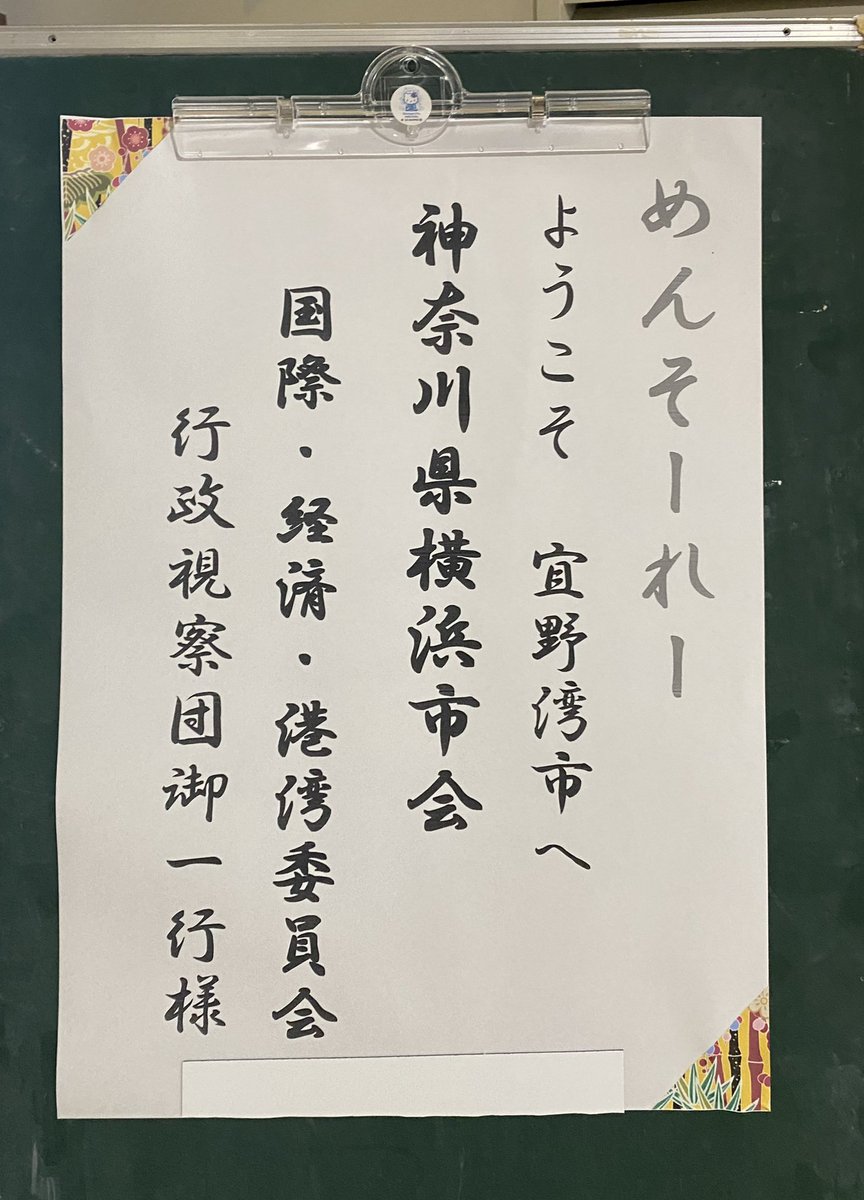 めんそーれー
ようこそ　宜野湾市へ
神奈川県横浜市会
国際・経済・港湾委員会
行政視察団御一行様